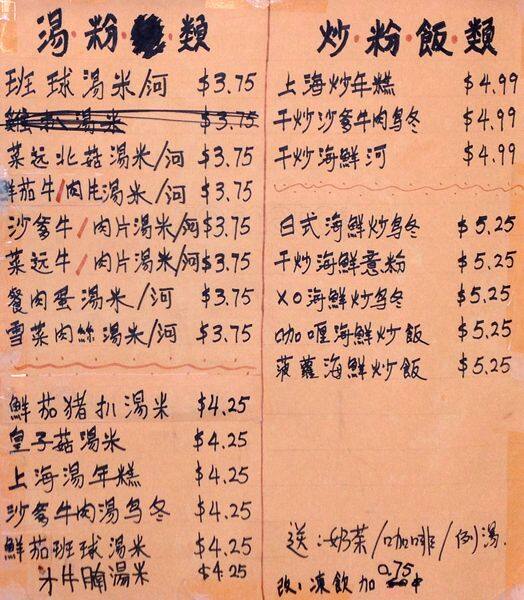 湯·粉·類
班球湯米/河 $3.75
雞扒湯米 $3.75
菜远北菇湯米/河 $3.75
鲜茄牛/肉片湯米/河 $3.75
沙爹牛/肉片湯米/河 $3.75
菜远牛/肉片湯米/河 $3.75
餐肉蛋湯米/河 $3.75
雪菜肉絲湯米/河 $3.75
鮮茄猪扒湯米 $4.25
皇子菇湯米 $4.25
上海湯年糕 $4.25
沙爹牛肉湯乌冬 $4.25
鮮茄班球湯米 $4.25
牛腩湯米 $4.25
炒·粉·飯·類
上海炒年糕 $4.99
干炒沙爹牛肉乌冬 $4.99
干炒海鮮河 $4.99
日式海鮮炒乌冬 $5.25
干炒海鮮意粉 $5.25
XO海鮮炒乌冬 $5.25
咖喱海鮮炒飯 $5.25
菠蘿海鮮炒飯 $5.25
送:奶茶/咖啡/例湯.
改:凍飲加 0.75